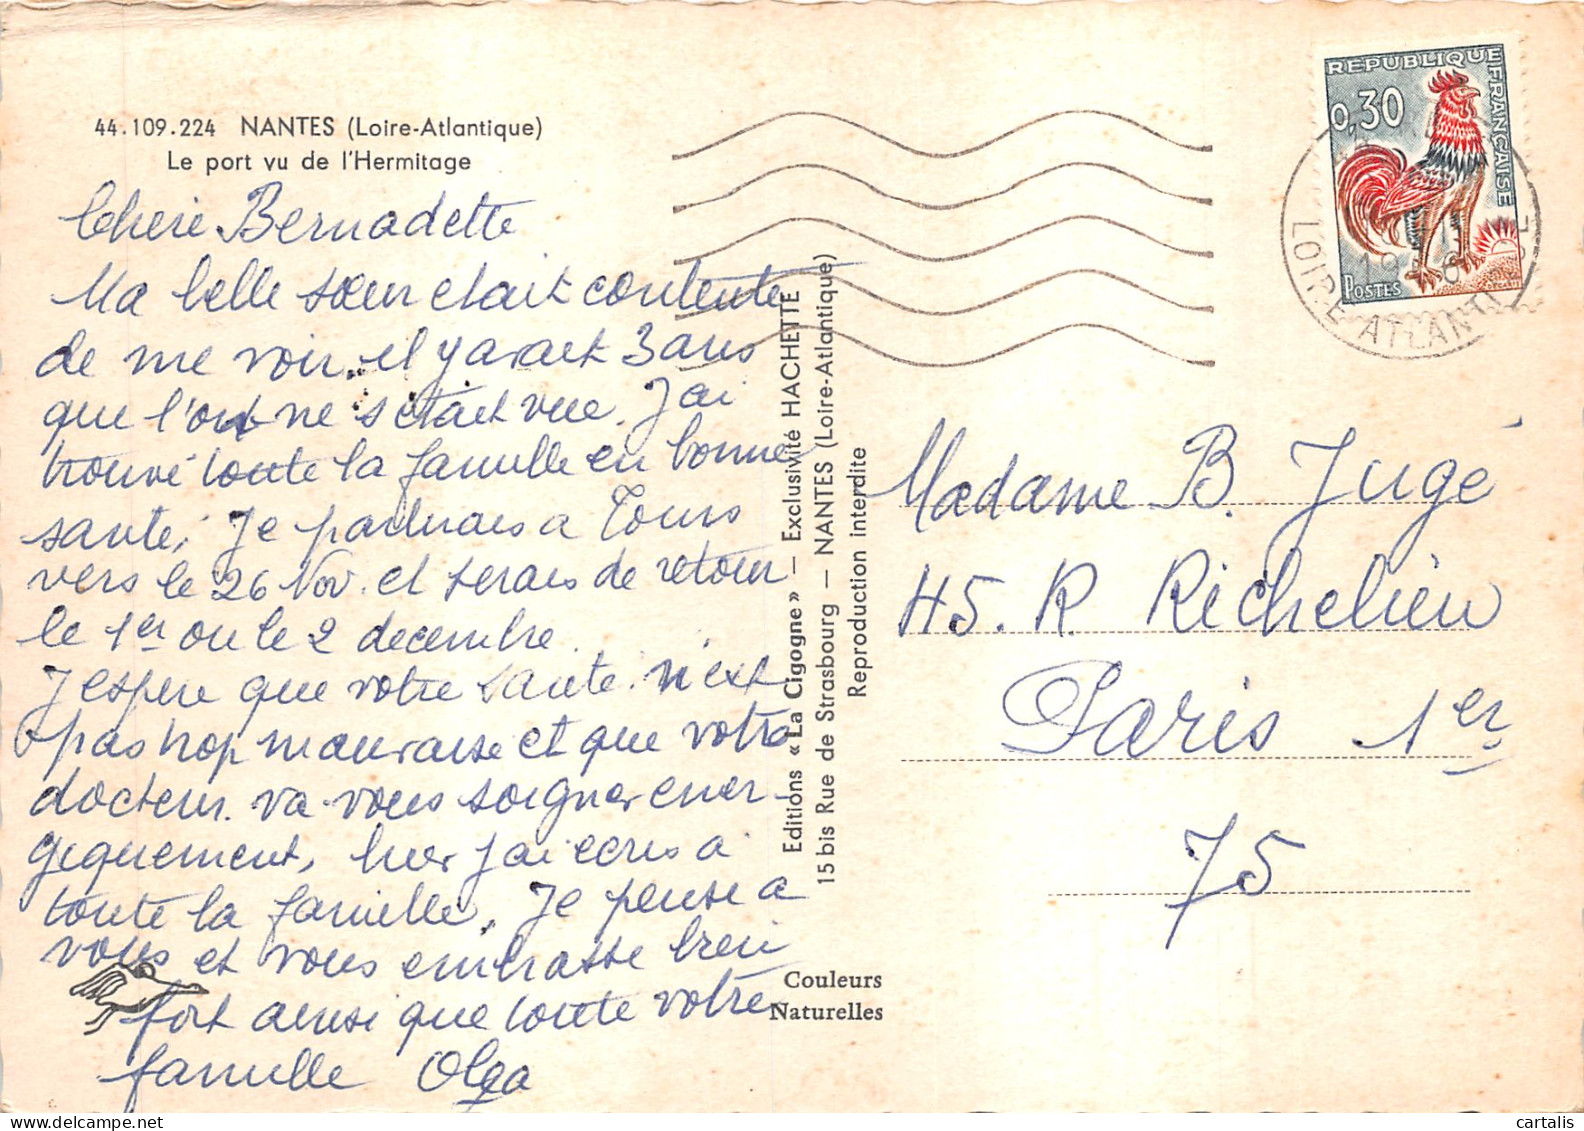 44.109.224 NANTES (Loire-Atlantique)
Le port vu de l'Hermitage
Cherie Bernadette
Ma belle sœur etait contente
de me voir, il y avait 3 ans
que l'on ne s'etait vue. J'ai
trouvé toute la famille en bonne
santé, Je partirais a Tours
vers le 26 Nov. et serais de retour
le 1er ou le 2 decembre.
J'espere que votre sante n'est
pas trop mauvaise et que votre
docteur va vous soigner ener-
gequement, hier j'ai ecris a
toute la famille. Je pense a
vous et vous embrasse bien
fort ainsi que toute votre
famille Olga
Editions « La Cigogne » — Exclusivité HACHETTE
15 bis Rue de Strasbourg — NANTES (Loire-Atlantique)
Reproduction interdite
Couleurs
Naturelles
REPUBLIQUE FRANÇAISE
0,30
POSTES
LOIRE-ATLANTI
Madame B. Jugé
45. R. Richelieu
Paris 1er
75
cartalis